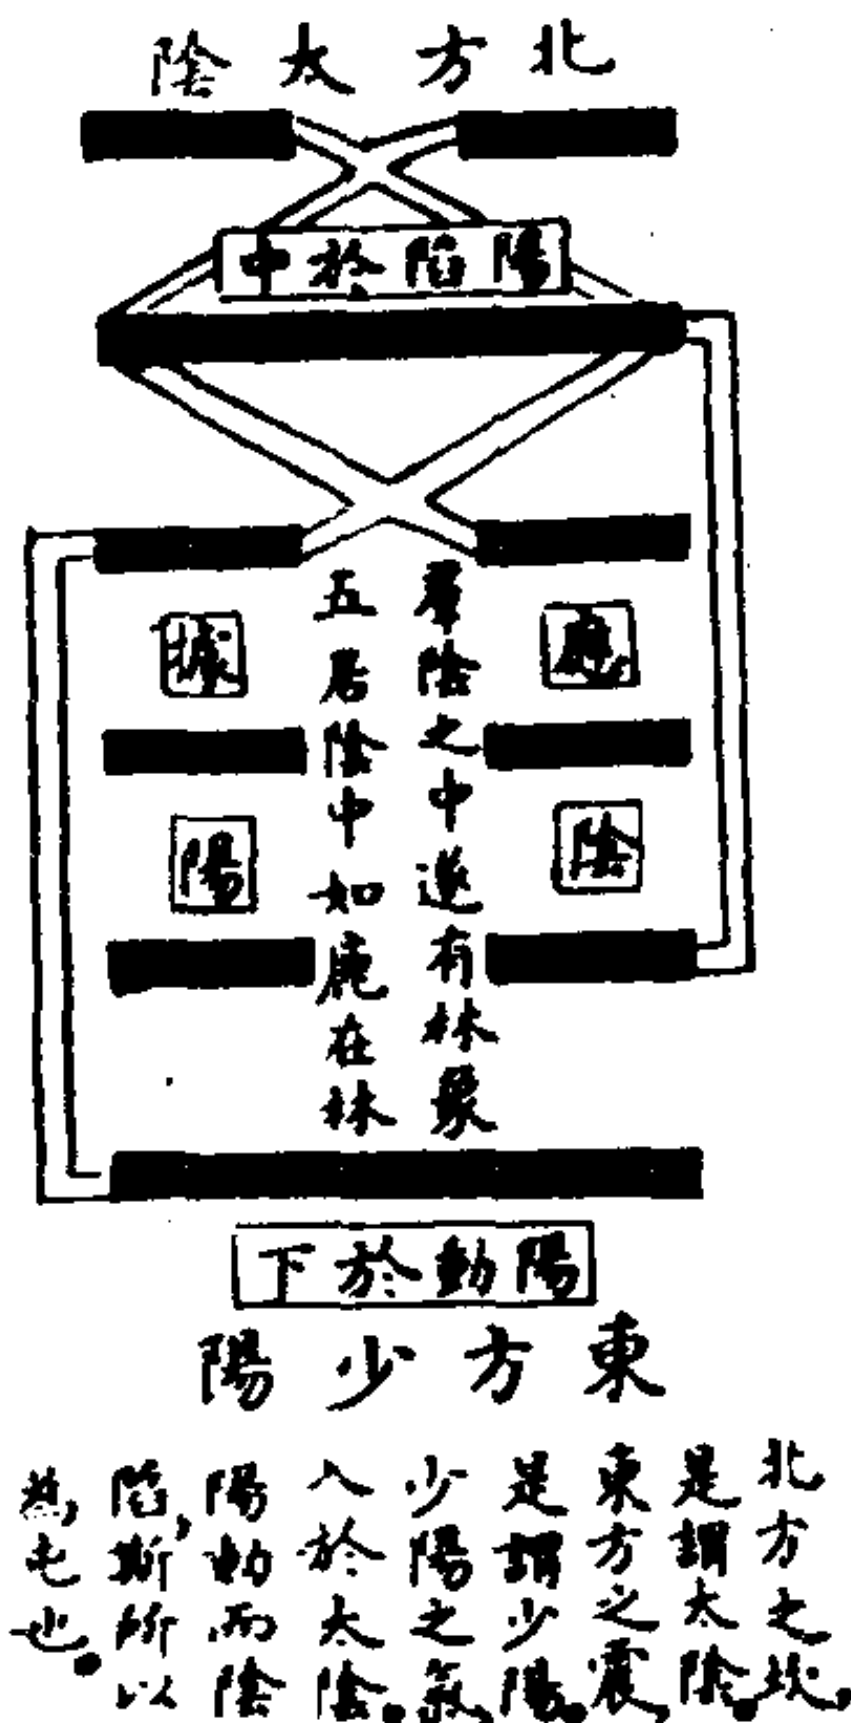 北方太陰
陽陷於中
應陰
據陽
羣陰之中遂有林象
五居陰中如鹿在林
陽動於下
東方少陽
北方之坎,
是謂太陰。
東方之震,
是謂少陽。
少陽之氣,
入於太陰。
陽動而陰
陷,斯所以
為屯也。